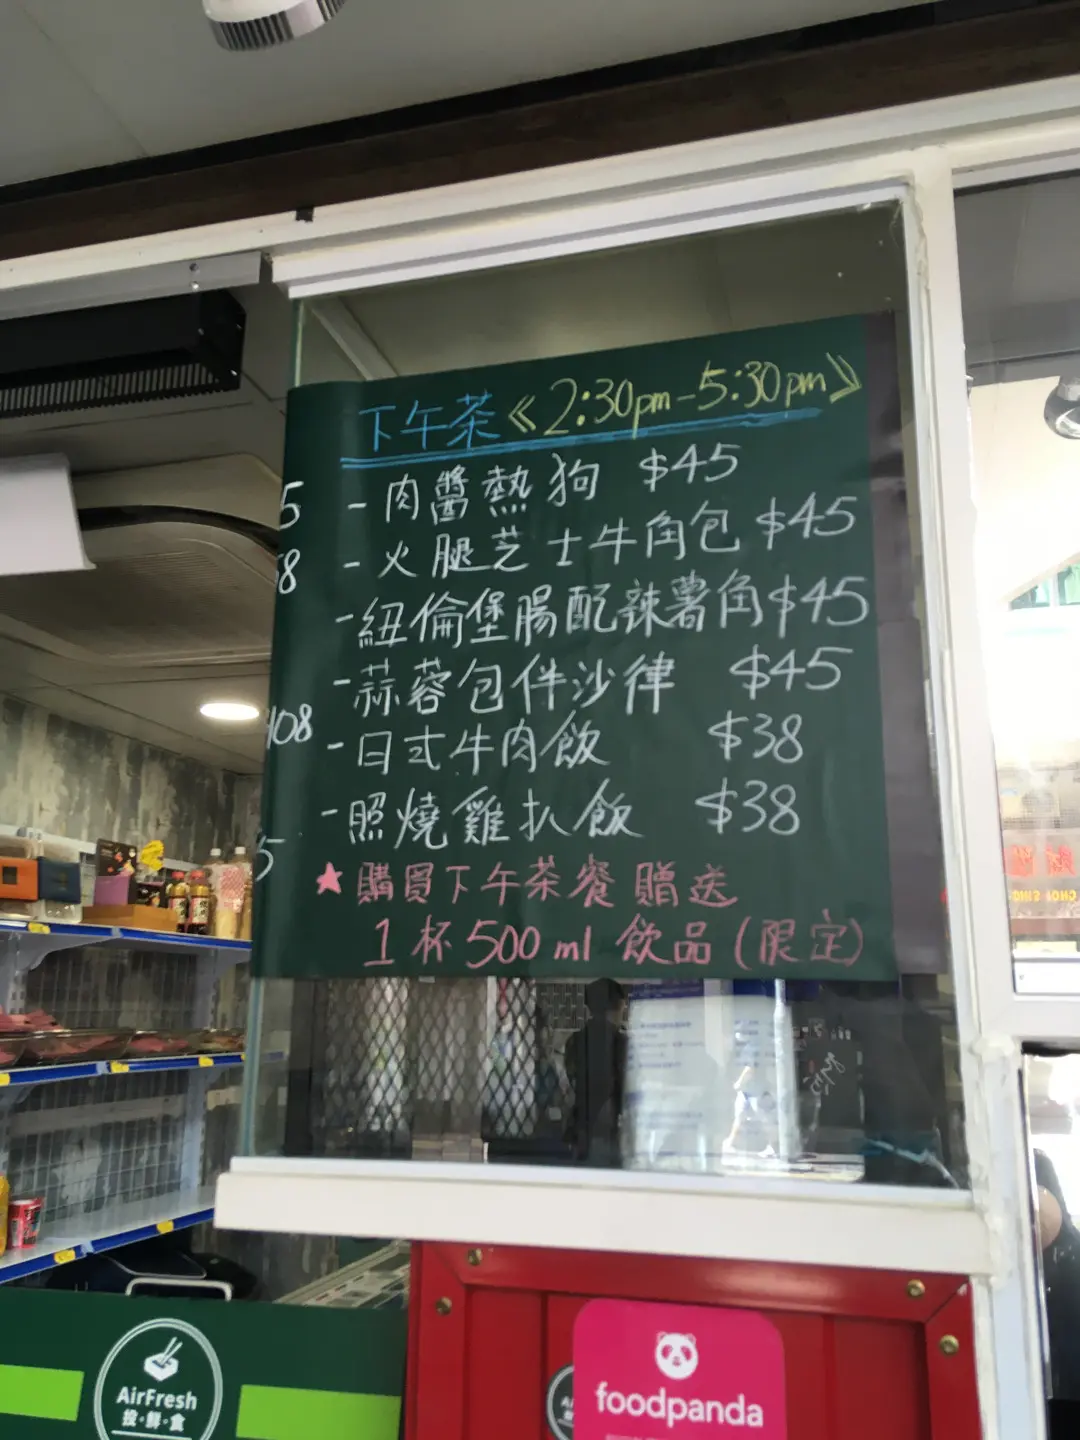 下午茶《2:30pm-5:30pm》
- 肉醬熱狗 $45
- 火腿芝士牛角包 $45
- 紐倫堡腸配辣薯角 $45
- 蒜蓉包伴沙律 $45
- 日式牛肉飯 $38
- 照燒雞扒飯 $38
★ 購買下午茶餐贈送
1杯500ml 飲品(限定)
5
8
108
5
AirFresh
投·鮮·食
foodpanda